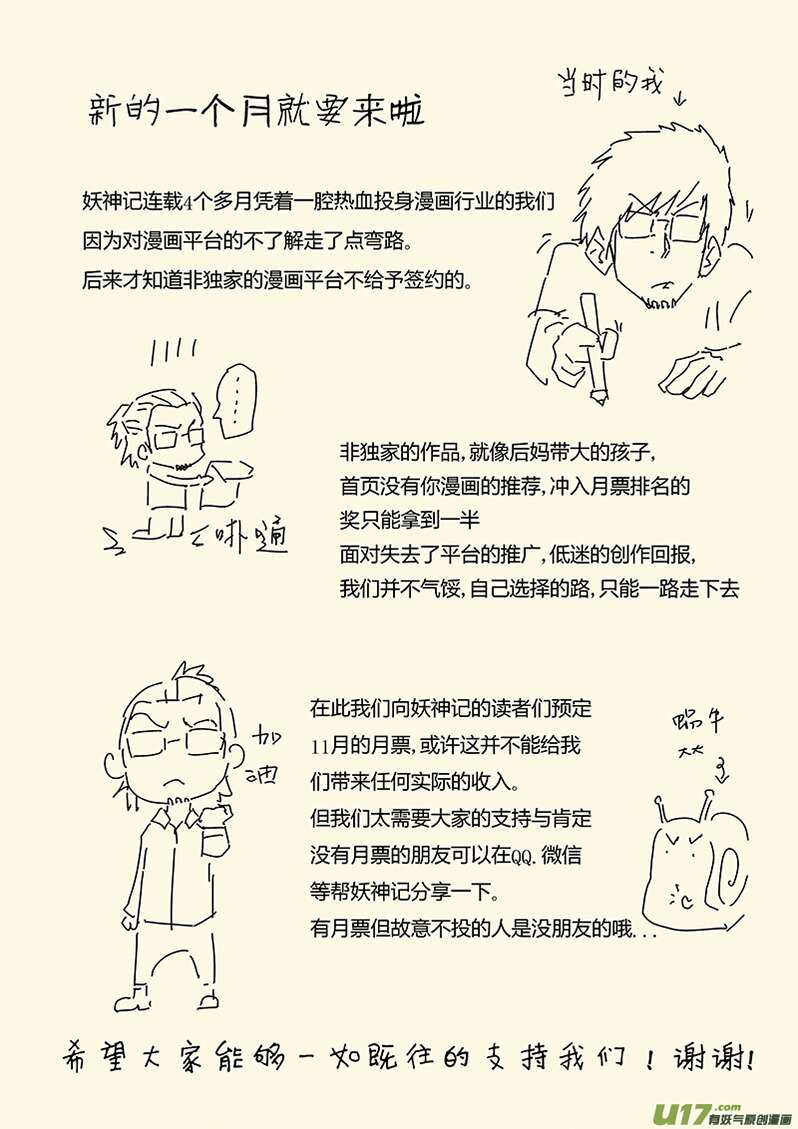 新的一个月就要来啦
当时的我
妖神记连载4个多月凭着一腔热血投身漫画行业的我们
因为对漫画平台的不了解走了点弯路。
后来才知道非独家的漫画平台不给予签约的。
......
非独家的作品,就像后妈带大的孩子,
首页没有你漫画的推荐,冲入月票排名的
奖只能拿到一半
面对失去了平台的推广,低迷的创作回报,
我们并不气馁,自己选择的路,只能一路走下去
在此我们向妖神记的读者们预定
11月的月票,或许这并不能给我
们带来任何实际的收入。
但我们太需要大家的支持与肯定
没有月票的朋友可以在QQ.微信
等帮妖神记分享一下。
有月票但故意不投的人是没朋友的哦...
加
油
蜗牛
大大
希望大家能够一如既往的支持我们!谢谢!
U17.com
有妖气原创漫画